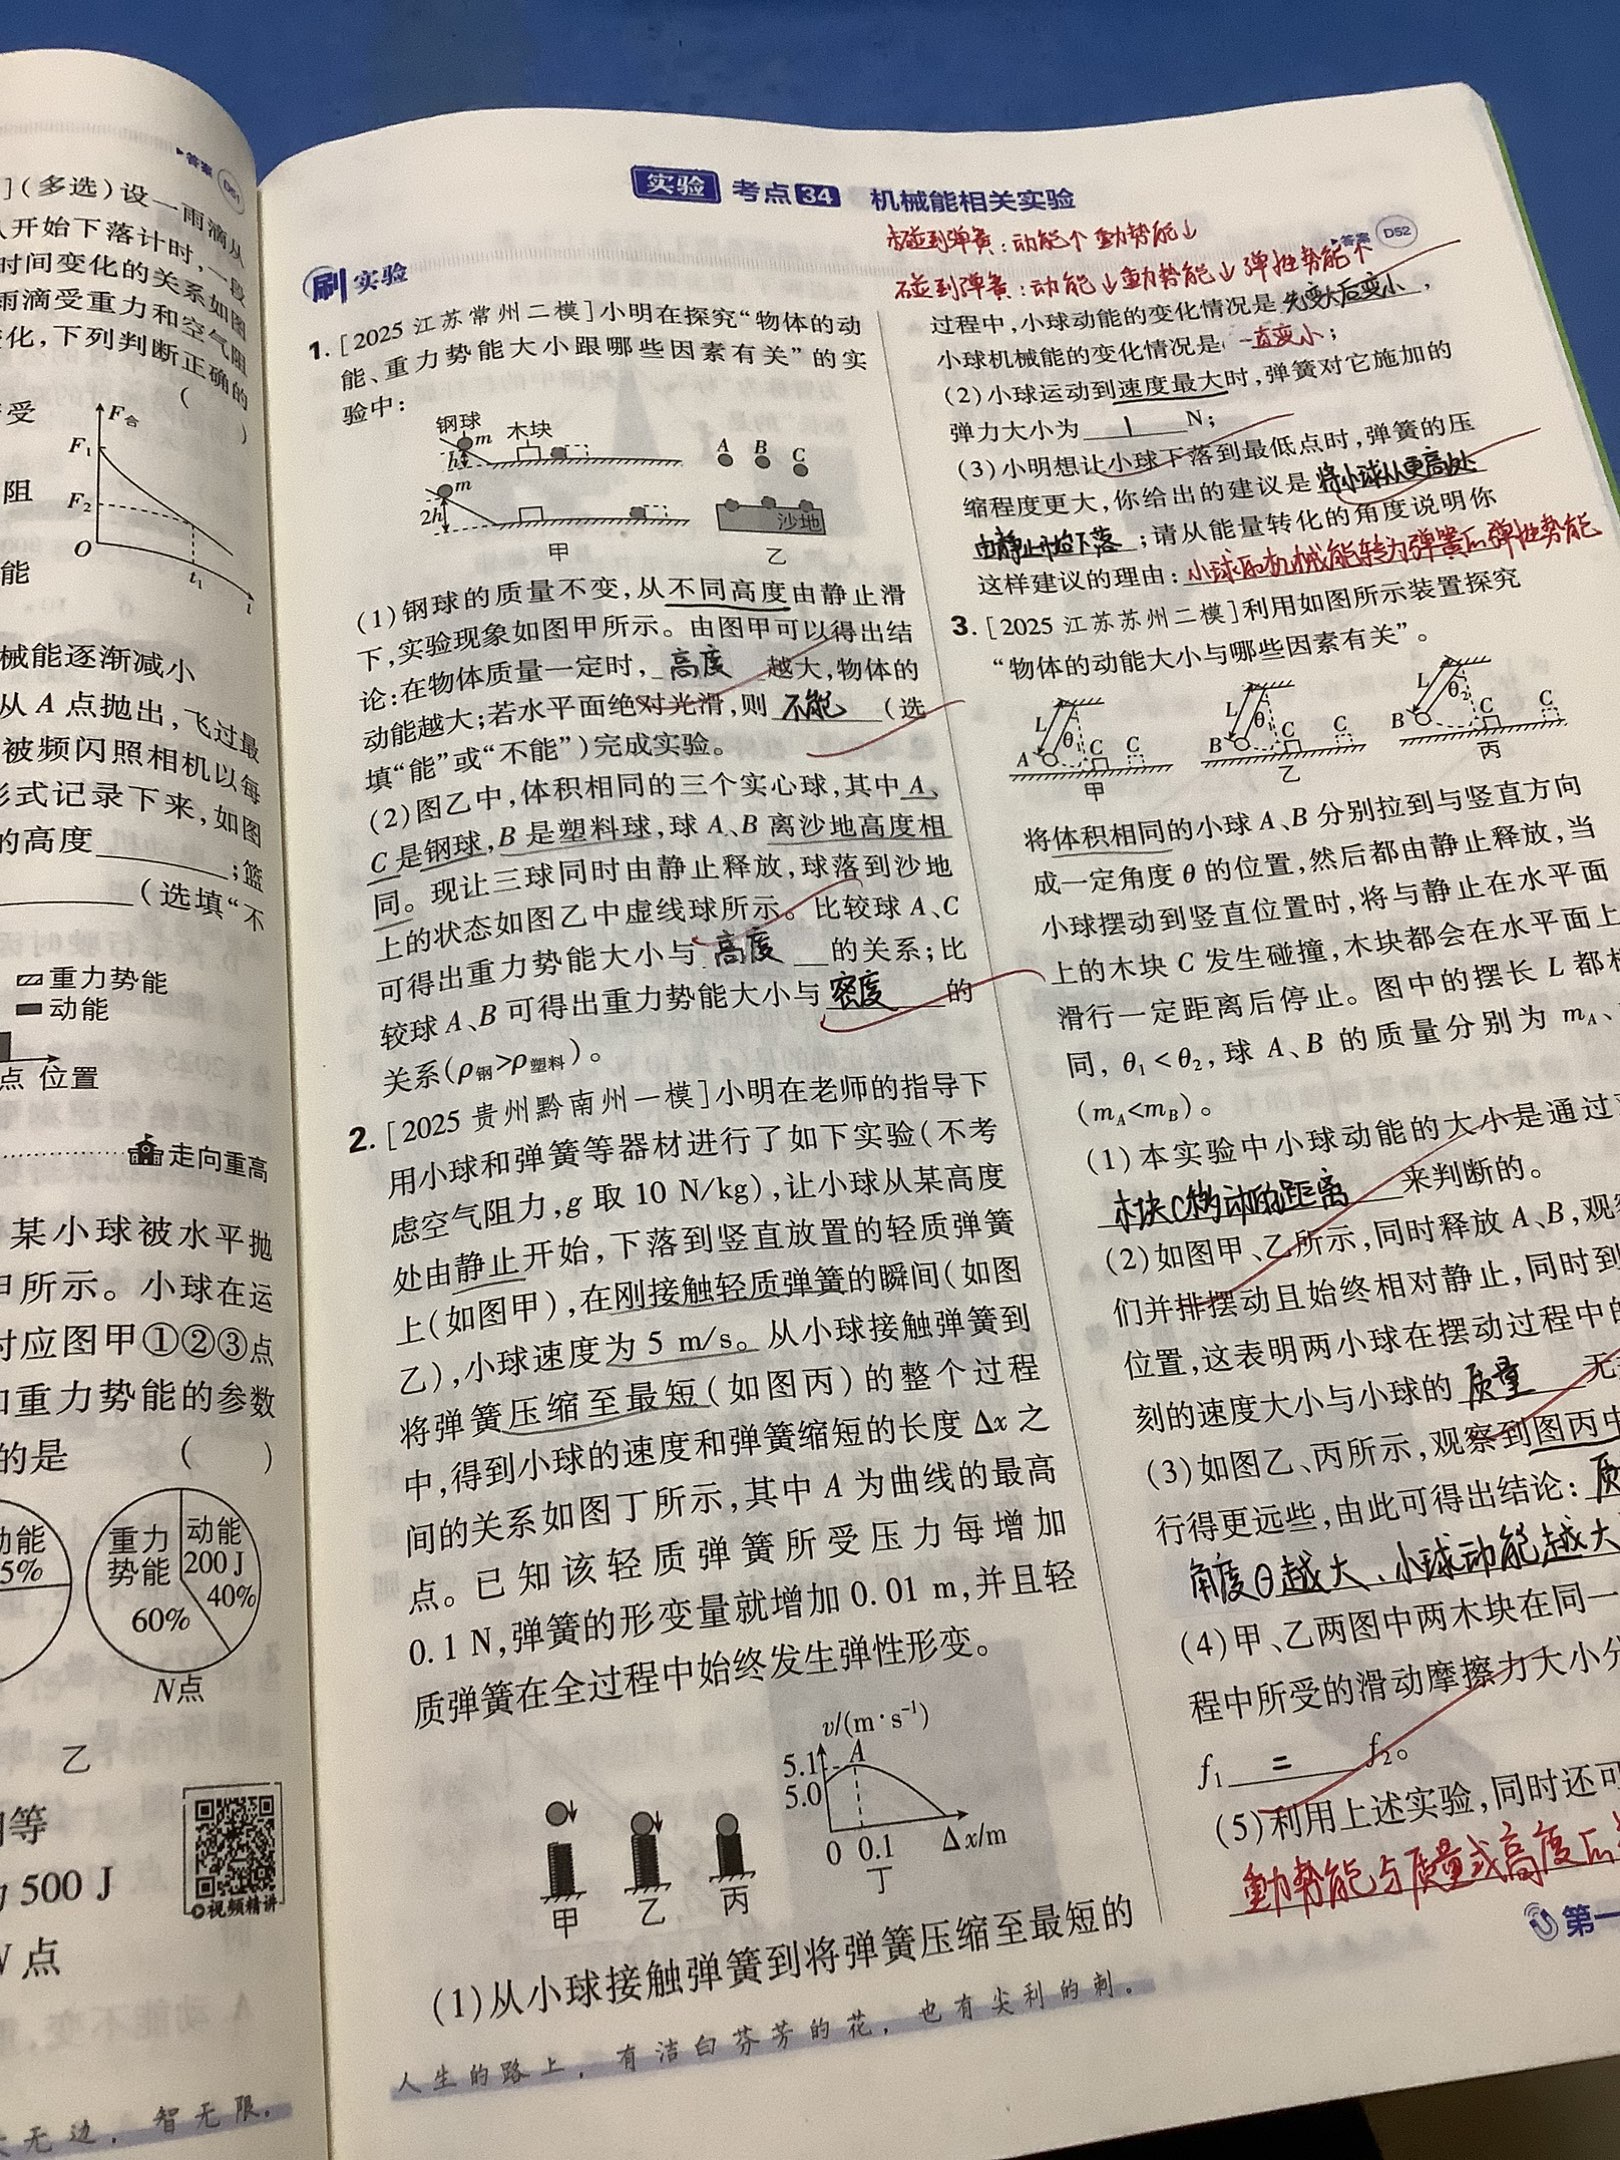 答案 D51
](多选)设一雨滴从
开始下落计时,一段
时间变化的关系如图
雨滴受重力和空气阻
化,下列判断正确的
( )
受
阻
能
F合
F₁
F₂
O
t₁
t
械能逐渐减小
从 A 点抛出,飞过最
被频闪照相机以每
形式记录下来,如图
的高度______;篮
______(选填“不
重力势能
动能
点 位置
走向重高
某小球被水平抛
甲所示。小球在运
对应图甲①②③点
和重力势能的参数
的是 ( )
动能
5%
重力势能
60%
动能
200 J
40%
N点
乙
相等
500 J
点
视频精讲
无边,智无限。
实验 考点34 机械能相关实验
答案 D52
未碰到弹簧:动能↑重力势能↓
碰到弹簧:动能↓重力势能↓弹性势能↑
刷实验
1. [2025 江苏常州二模]小明在探究“物体的动
能、重力势能大小跟哪些因素有关”的实
验中:
钢球
m
木块
h
m
2h
甲
A B C
沙地
乙
(1)钢球的质量不变,从不同高度由静止滑
下,实验现象如图甲所示。由图甲可以得出结
论:在物体质量一定时,高度越大,物体的
动能越大;若水平面绝对光滑,则 不能 (选
填“能”或“不能”)完成实验。
(2)图乙中,体积相同的三个实心球,其中 A、
C 是钢球,B 是塑料球,球 A、B 离沙地高度相
同。现让三球同时由静止释放,球落到沙地
上的状态如图乙中虚线球所示。比较球 A、C
可得出重力势能大小与 高度 的关系;比
较球 A、B 可得出重力势能大小与 密度 的
关系(ρ钢>ρ塑料)。
2. [2025 贵州黔南州一模]小明在老师的指导下
用小球和弹簧等器材进行了如下实验(不考
虑空气阻力,g 取 10 N/kg),让小球从某高度
处由静止开始,下落到竖直放置的轻质弹簧
上(如图甲),在刚接触轻质弹簧的瞬间(如图
乙),小球速度为 5 m/s。从小球接触弹簧到
将弹簧压缩至最短(如图丙)的整个过程
中,得到小球的速度和弹簧缩短的长度 Δx 之
间的关系如图丁所示,其中 A 为曲线的最高
点。已知该轻质弹簧所受压力每增加
0.1 N,弹簧的形变量就增加 0.01 m,并且轻
质弹簧在全过程中始终发生弹性形变。
甲
乙
丙
v/(m·s⁻¹)
5.1
5.0
A
0 0.1 Δx/m
丁
(1)从小球接触弹簧到将弹簧压缩至最短的
人生的路上,有洁白芬芳的花,也有尖利的刺。
过程中,小球动能的变化情况是 先变大后变小,
小球机械能的变化情况是 一直变小;
(2)小球运动到速度最大时,弹簧对它施加的
弹力大小为 1 N;
(3)小明想让小球下落到最低点时,弹簧的压
缩程度更大,你给出的建议是 将小球从更高处
由静止开始下落;请从能量转化的角度说明你
这样建议的理由:小球的机械能转为弹簧的弹性势能
3. [2025 江苏苏州二模]利用如图所示装置探究
“物体的动能大小与哪些因素有关”。
L θ₁ A C C
甲
L θ₁ B C C
乙
L θ₂ B C C
丙
将体积相同的小球 A、B 分别拉到与竖直方向
成一定角度 θ 的位置,然后都由静止释放,当
小球摆动到竖直位置时,将与静止在水平面
上的木块 C 发生碰撞,木块都会在水平面上
滑行一定距离后停止。图中的摆长 L 都相
同,θ₁<θ₂,球 A、B 的质量分别为 mA、
(mA<mB)。
(1)本实验中小球动能的大小是通过
木块C移动的距离来判断的。
(2)如图甲、乙所示,同时释放 A、B,观察
们并排摆动且始终相对静止,同时到
位置,这表明两小球在摆动过程中的
刻的速度大小与小球的 质量 无
(3)如图乙、丙所示,观察到图丙中
行得更远些,由此可得出结论:质
角度θ越大、小球动能越大
(4)甲、乙两图中两木块在同一
程中所受的滑动摩擦力大小分
f₁ = f₂。
(5)利用上述实验,同时还可
重力势能与质量或高度的
第一